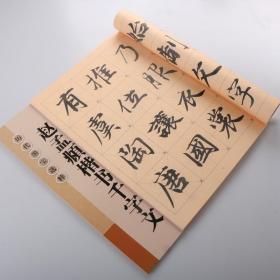 始制文字
乃服衣裳
推位讓國
有虞陶唐
赵孟頫楷书千字文